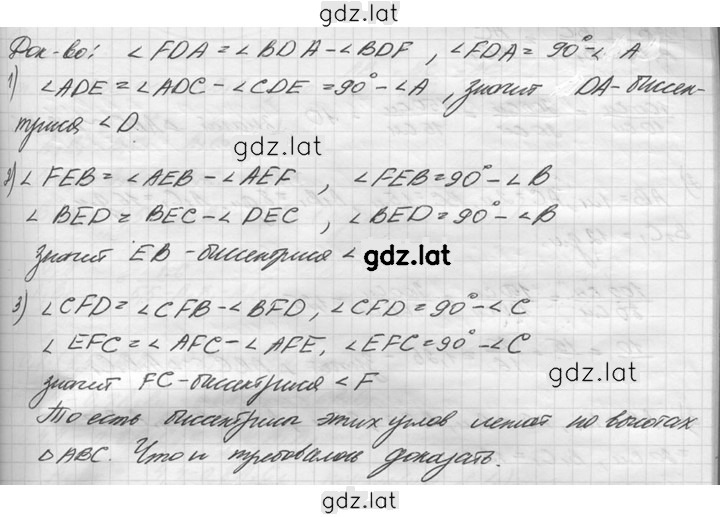 gdz.lat
Док-во: ∠FDA = ∠BDA - ∠BDF, ∠FDA = 90° - ∠A
1) ∠ADE = ∠ADC - ∠CDE = 90° - ∠A, значит DA - биссек-
триса ∠D
gdz.lat
2) ∠FEB = ∠AEB - ∠AEF, ∠FEB = 90° - ∠B
∠BED = BEC - ∠DEC, ∠BED = 90° - ∠B
значит EB - биссектриса ∠
gdz.lat
3) ∠CFD = ∠CFB - ∠BFD, ∠CFD = 90° - ∠C
∠EFC = ∠AFC - ∠AFE, ∠EFC = 90° - ∠C
значит FC - биссектриса ∠F
gdz.lat
То есть биссектрисы этих углов лежат на высотах
△ABC. Что и требовалось доказать.
gdz.lat